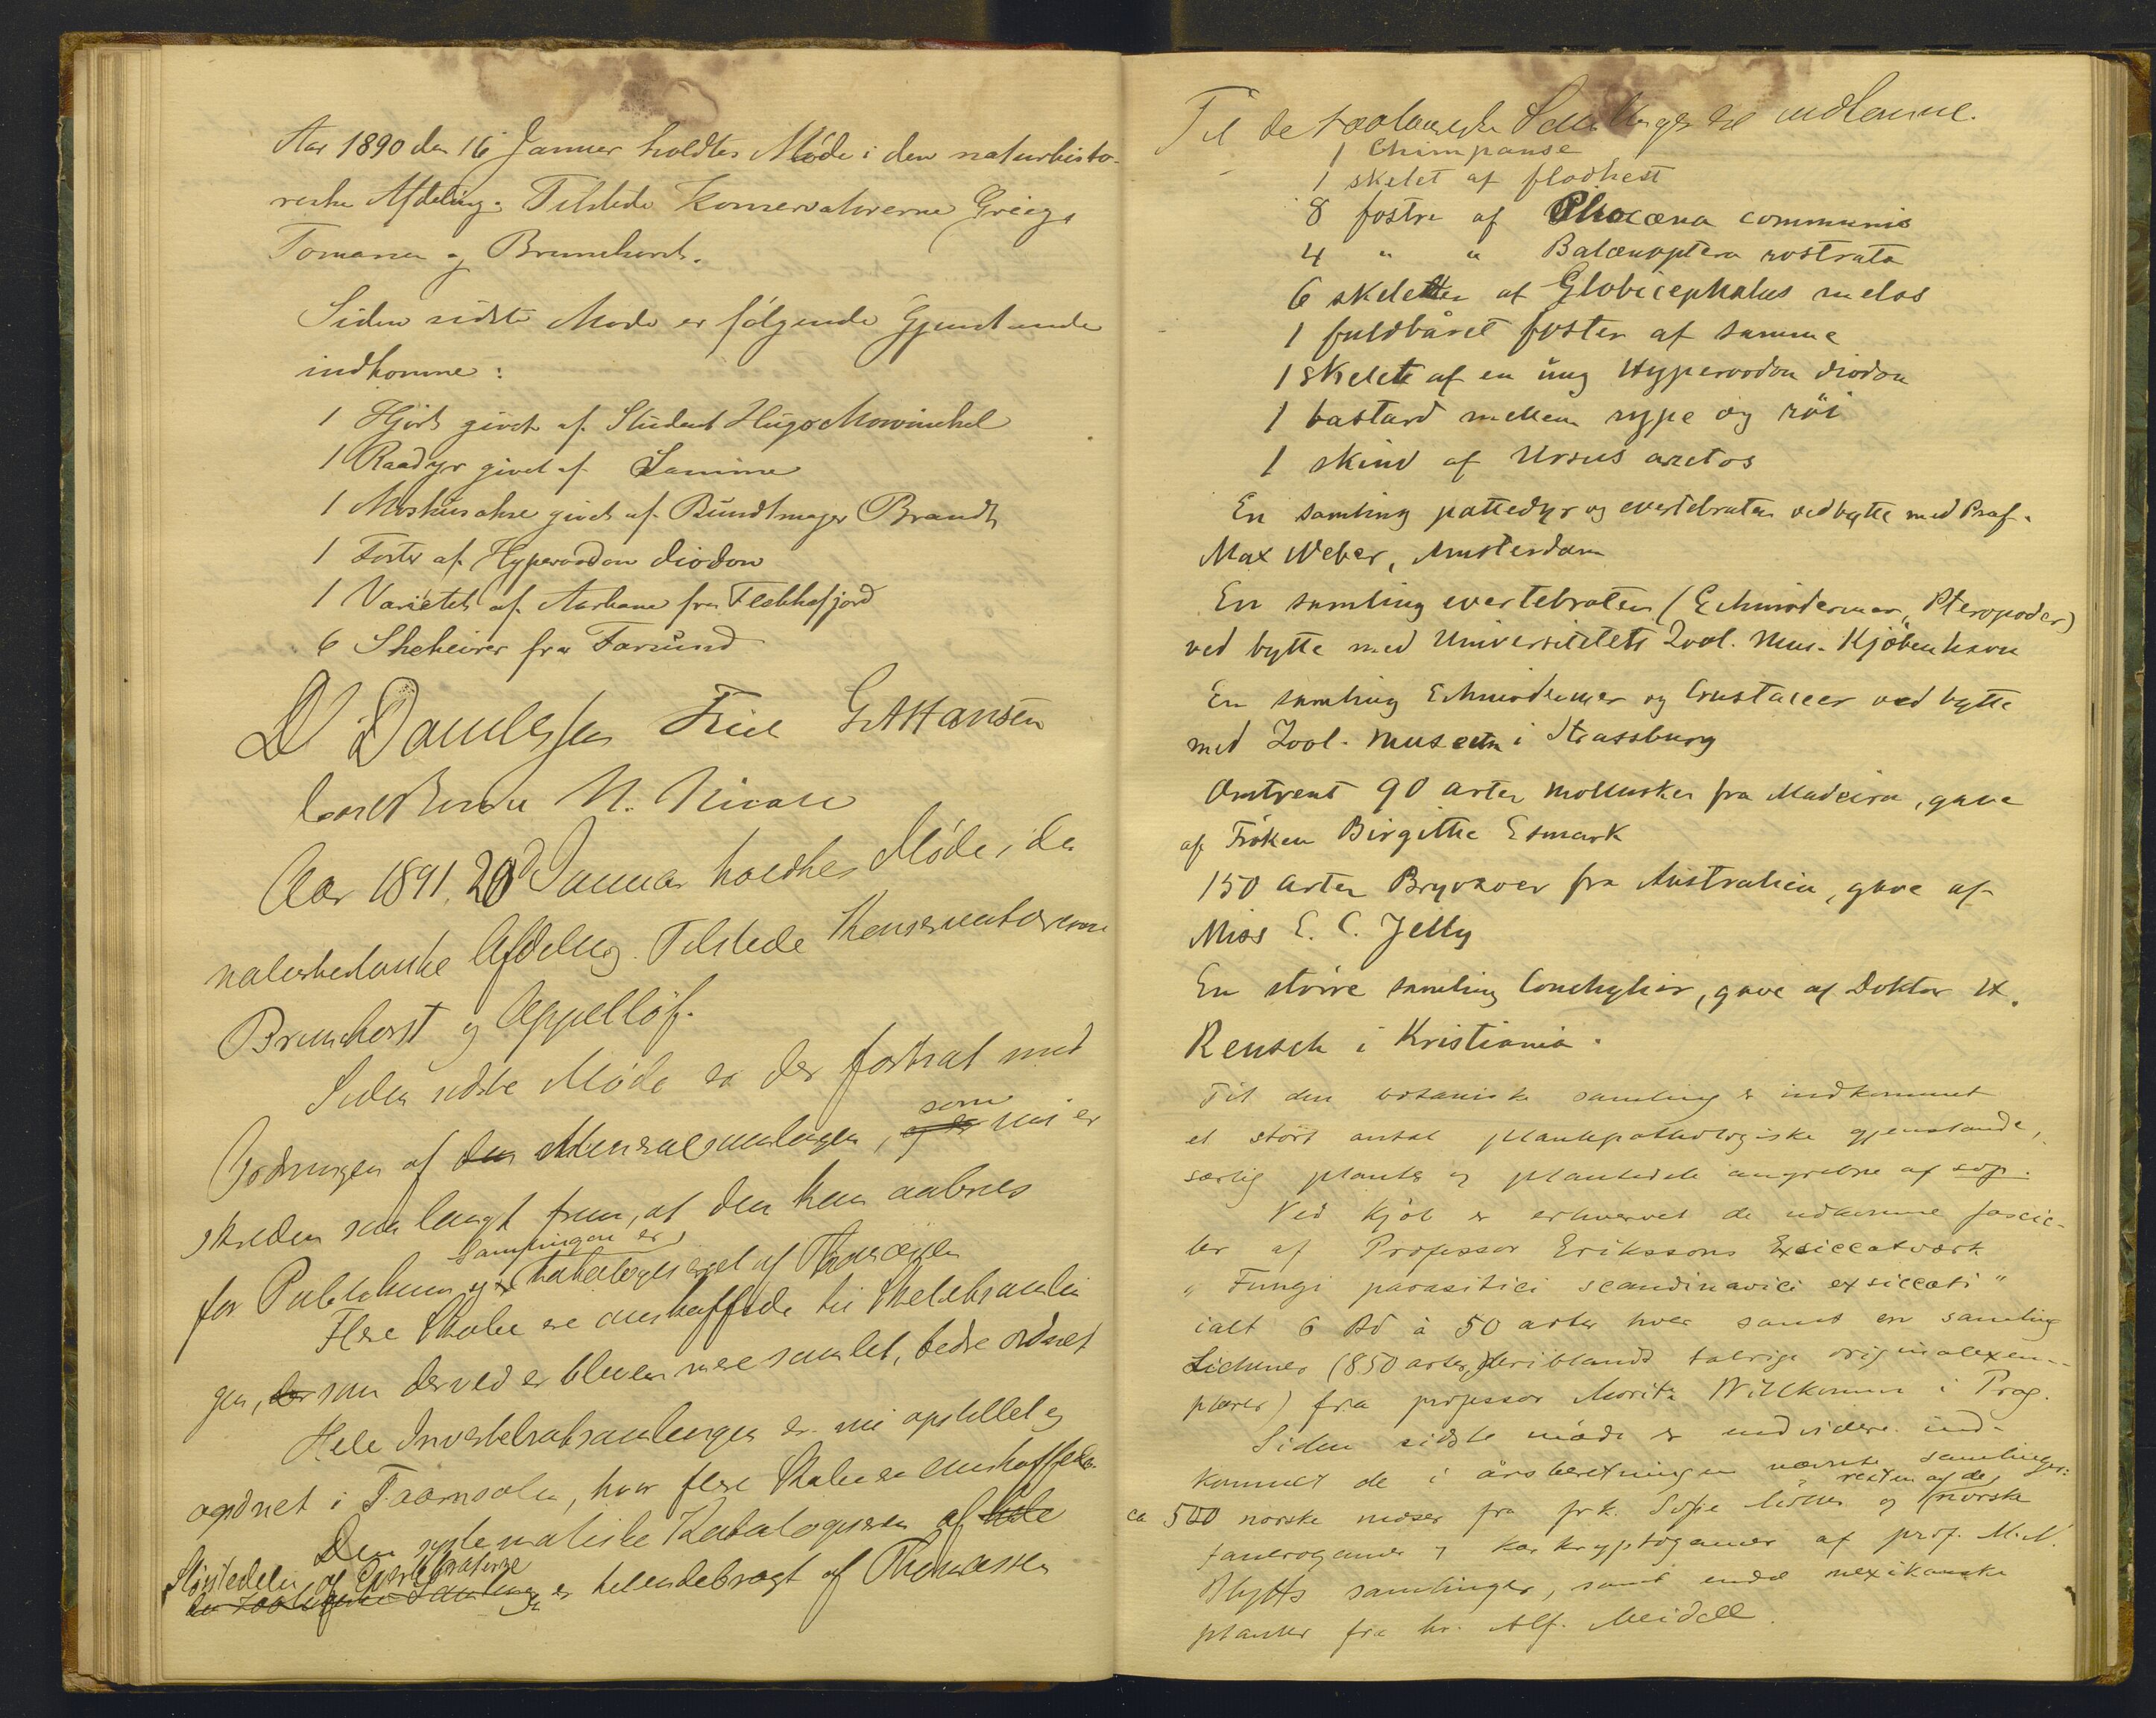 Aar 1890 den 16 Januar holdtes Møde i den naturhisto-
riske Afdeling. Tilstede Konservatorerne Grieg,
og Brunchorst.
Siden sidste Møde er følgende Gjenstande
indkomne:
1 Hjort givet af Student Hugo Mowinckel
1 Raadyr givet af Samme
1 Moskusokse givet af Bundtmager Brandt
1 Foster af Hyperoodon diodon
1 Varietet af Aarhane fra Flekkefjord
6 fra Farsund
D Danielssen Friele G A Hansen
N. Nicolai
Aar 1891, 20 Januar holdtes Møde i den
naturhistoriske Afdeling. Tilstede Konservatorerne
Brunchorst og Appellöf.
Siden sidste Møde er der fortsat med
Ordningen af den Mineralsamlingen, og er som nu er
skreden saa langt frem, at den kan aabnes
for Publikum, og Samlingen er katalogiseret af Thomassen
Flere Skabe ere anskaffede til Skeletsamlin
gen, der som derved er bleven mere samlet, bedre ordnet
Hele Invertebratsamlingen er nu opstillet og
ordnet i Taarnsalen, hvor flere Skabe ere anskaffede.
Den systematiske Katalogisering af hele
Størstedelen af Evertebraterne
den zoologiske Samling er tilendebragt af Thomassen
Til de zoologiske Samlinger er indkomne.
1 Chimpanse
1 skelet af flodhest
8 fostre af Phocæna communis
4 " " Balænoptera rostrata
6 skeletter af Globicephalus melas
1 fuldbåret foster af samme
1 skelett af en ung Hyperoodon diodon
1 bastard mellem rype og röi
1 skind af Ursus arctos
En samling pattedyr og evertebrater ved bytte med Prof.
Max Weber, Amsterdam
En samling evertebrater (Echinodermer, Pteropoder)
ved bytte med Universitetets Zool. Mus. Kjöbenhavn
En samling Echinodermer og Crustaceer ved bytte
med Zool. Museum i Strassburg
Omtrent 90 arter mollusker fra Madeira, gave
af Fröken Birgithe Esmark
150 arter Bryozoer fra Australien, gave af
Miss E. C. Jelly
En större samling Conchylier, gave af Doktor H.
Reusch i Kristiania.
Til den botaniske samling er indkommet
et stört antal plantepatologiske gjenstande,
særlig planter og plantedele angrebne af sop.
Ved kjöb er erhvervet de udkomne fascic-
ler af Professor Erikssons Exsiccatværk
"Fungi parasitici scandinavici exsiccati"
ialt 6 Bd à 50 arter hver samt en samling
Lichener (850 arter, deriblandt talrige originalexem-
plarer) fra professor Moritz Willkomm i Prag.
Siden sidste möde er endvidere ind-
kommet de i årsberetningen nævnte samlinger:
ca 500 norske moser fra frk. Sofie Möller og resten af de norske
fanerogamer og karkryptogamer af prof. M. N.
Blytts samlinger, samt endel mexikanske
planter fra hr. Alf. Meidell.